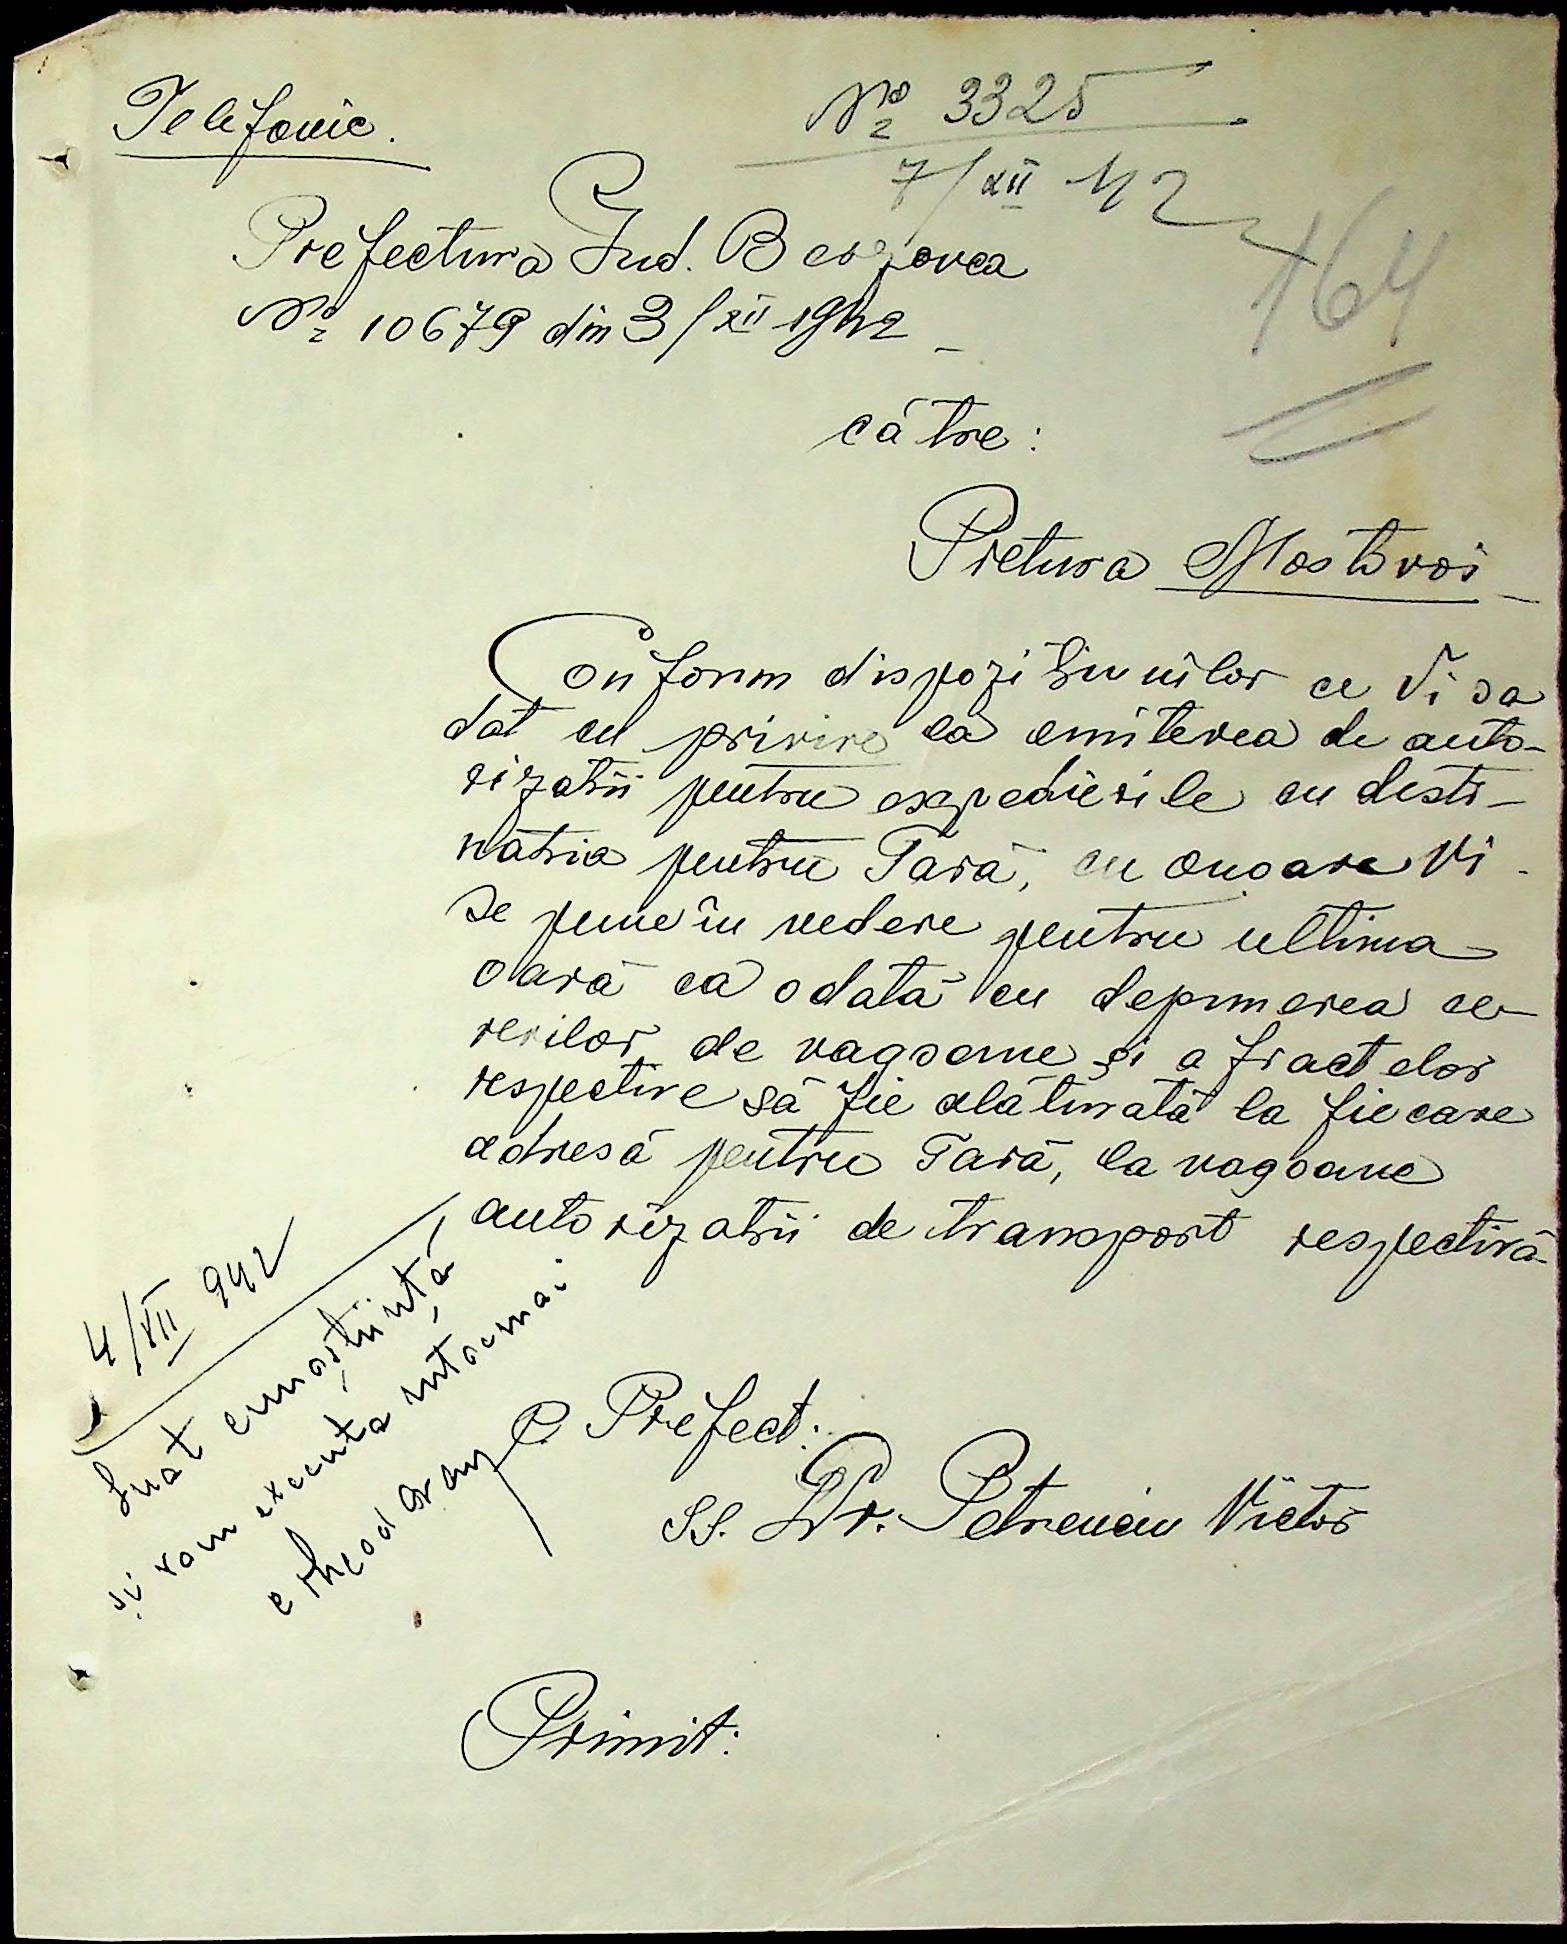 Telefonic.
No 3325
7/XII 42
164
Prefectura Jud. Berezovca
No 10679 din 3/XII 1942
către:
Pretura Mostovoi
Conform dispozițiunilor ce Vi sa
dat cu privire la emiterea de auto-
rizații pentru expedierile cu desti-
nația pentru Țară, cu onoare Vi
se pune în vedere pentru ultima
oară că odată cu depunerea ce-
rerilor de vagoane și a fractelor
respective să fie alăturată la fiecare
adresă pentru Țară, la vagoane
autorizații de transport respectivă
4/XII 942
Luat cunoștiință
și vom executa întocmai
P. Prefect:
ss. Dr. Petrenciu Victor
Primit: